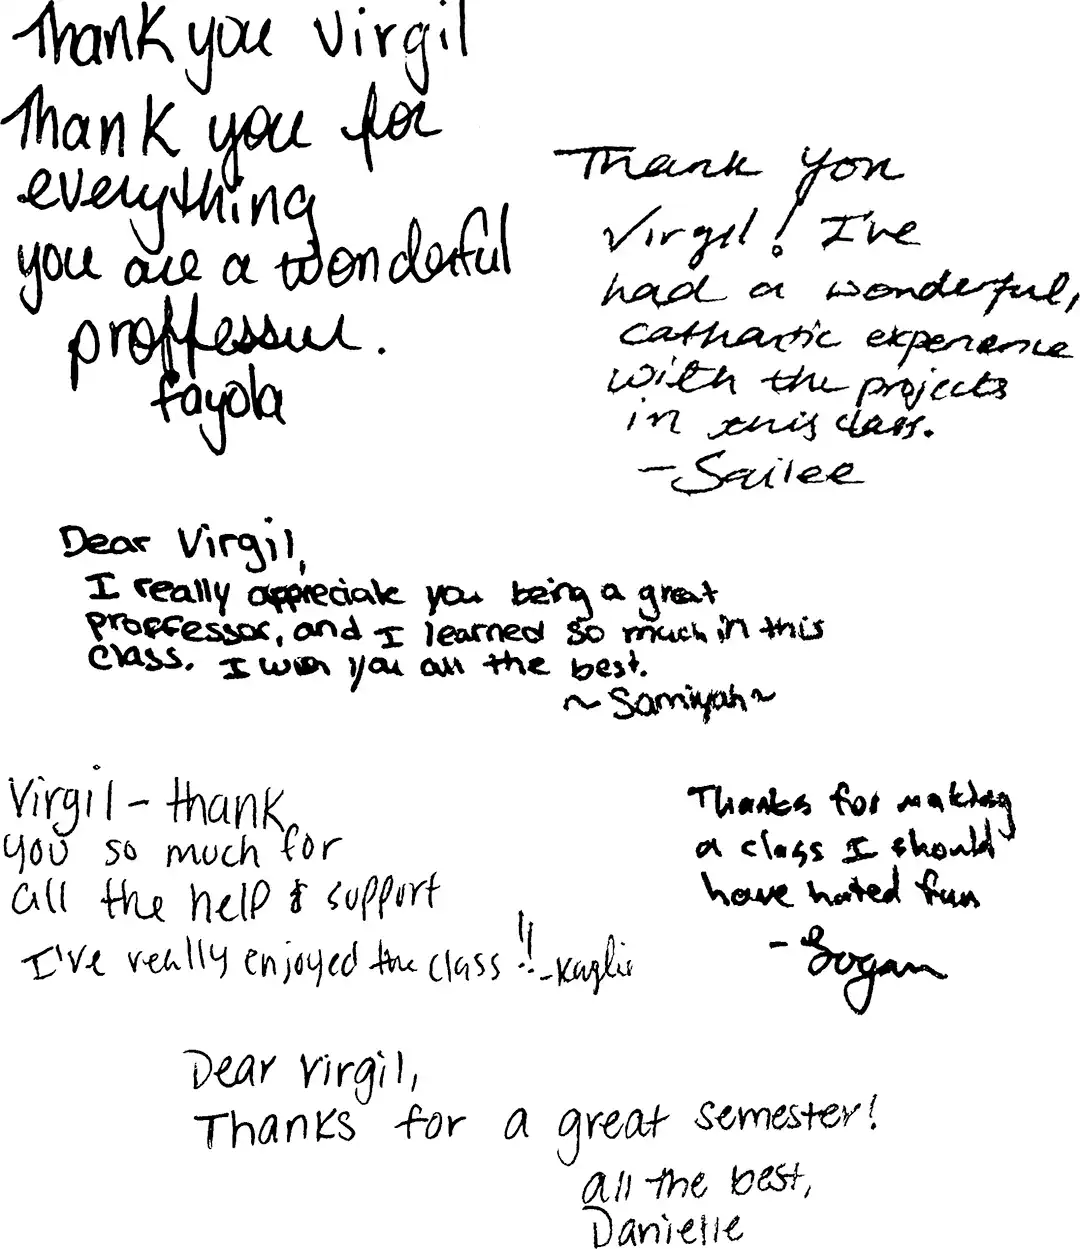 Thank you Virgil
Thank you for
everything
you are a wonderful
proffessur.
fayola
Thank you
Virgil! I've
had a wonderful,
cathartic experience
with the projects
in this class.
-Sailee
Dear Virgil,
I really appreciate you being a great
proffessor, and I learned so much in this
class. I wish you all the best.
~Samiyah~
Virgil - thank
you so much for
all the help & support
I've really enjoyed the class!! -Kaylie
Thanks for making
a class I should
have hated fun
-
Dear Virgil,
Thanks for a great semester!
all the best,
Danielle